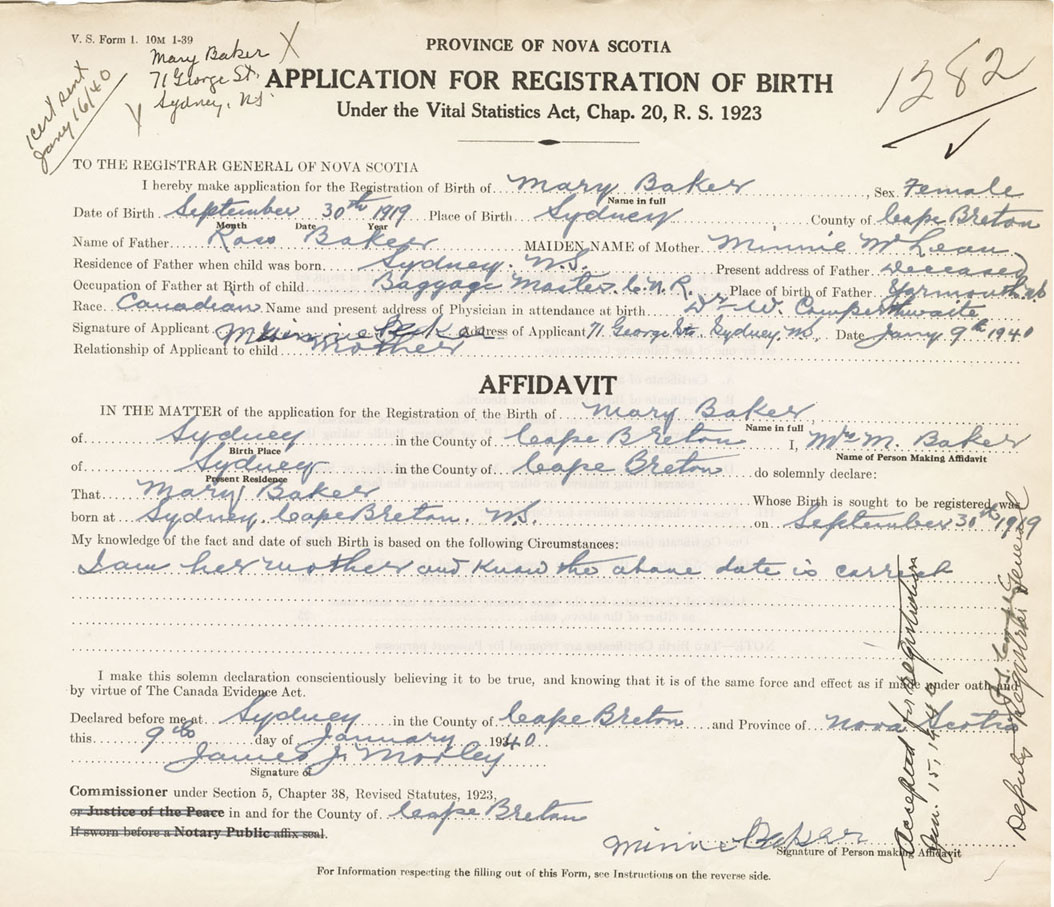 V. S. Form 1. 10M 1-39
Mary Baker X
71 George St.
Sydney, N.S.
1 cert sent
Jany 16/40
PROVINCE OF NOVA SCOTIA
APPLICATION FOR REGISTRATION OF BIRTH
Under the Vital Statistics Act, Chap. 20, R. S. 1923
1382
TO THE REGISTRAR GENERAL OF NOVA SCOTIA
I hereby make application for the Registration of Birth of Mary Baker, Sex Female
Name in full
Date of Birth September 30th 1919 Place of Birth Sydney County of Cape Breton
Month Date Year
Name of Father Ross Baker MAIDEN NAME of Mother Minnie McLean
Residence of Father when child was born Sydney. N.S. Present address of Father Deceased
Occupation of Father at Birth of child Baggage Master C.N.R. Place of birth of Father Yarmouth NS
Race Canadian Name and present address of Physician in attendance at birth Dr W. Comperthwaite
Signature of Applicant Minnie Baker Address of Applicant 71 George St. Sydney, N.S. Date Jany 9th 1940
Relationship of Applicant to child Mother
AFFIDAVIT
IN THE MATTER of the application for the Registration of the Birth of Mary Baker
Name in full
of Sydney in the County of Cape Breton I, Mrs M. Baker
Birth Place Name of Person Making Affidavit
of Sydney in the County of Cape Breton do solemnly declare:
Present Residence
That Mary Baker Whose Birth is sought to be registered was
born at Sydney. Cape Breton. N.S. on September 30th 1919
My knowledge of the fact and date of such Birth is based on the following Circumstances:
I am her mother and know the above date is correct
I make this solemn declaration conscientiously believing it to be true, and knowing that it is of the same force and effect as if made under oath and
by virtue of The Canada Evidence Act.
Declared before me at Sydney in the County of Cape Breton and Province of Nova Scotia
this 9th day of January 1940.
James J. Morley
Signature of
Commissioner under Section 5, Chapter 38, Revised Statutes, 1923,
or Justice of the Peace in and for the County of Cape Breton
If sworn before a Notary Public affix seal.
Minnie Baker
Signature of Person making Affidavit
For Information respecting the filling out of this Form, see Instructions on the reverse side.
Accepted for registration
Jan. 15, 1940
Deputy Registrar General